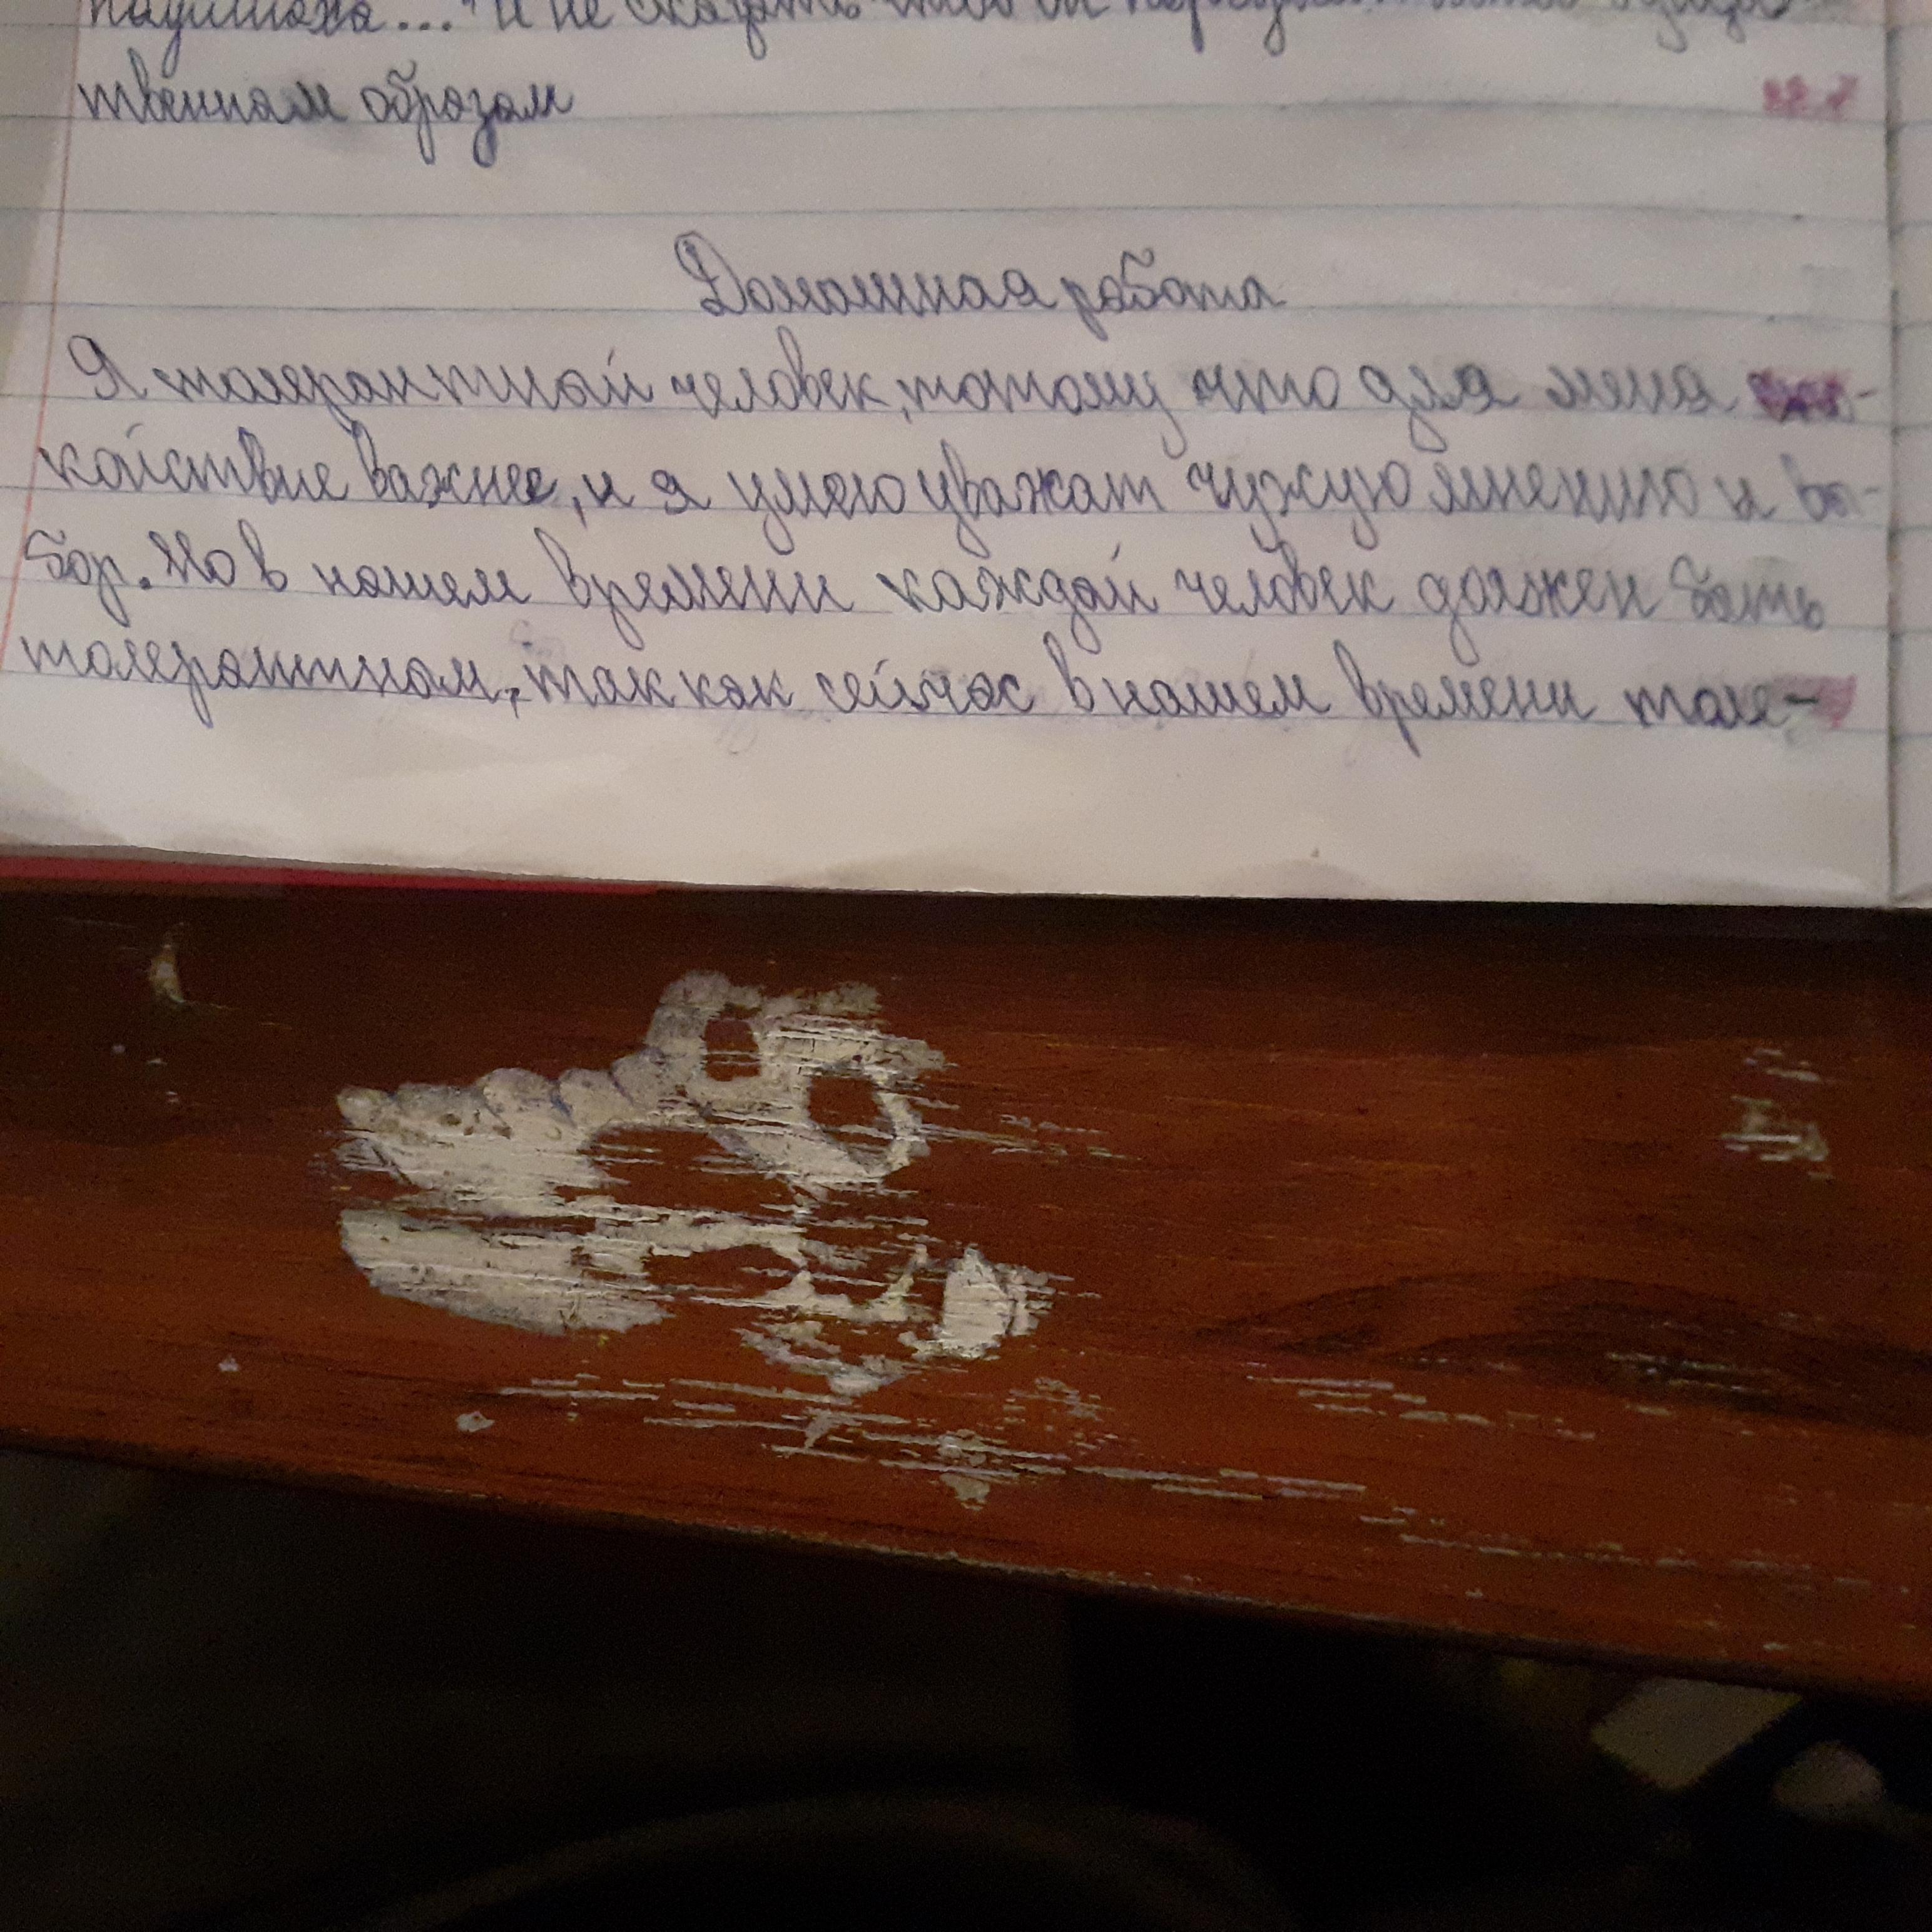 и не сказать
твенном образом
Домашная работа
Я толерантный человек, потому что для меня
койствие важнее, и я умею уважат чужую мнению и вы-
бор. Но в нашем времени каждый человек должен быть
толерантном, так как сейчас в нашем времени толе-